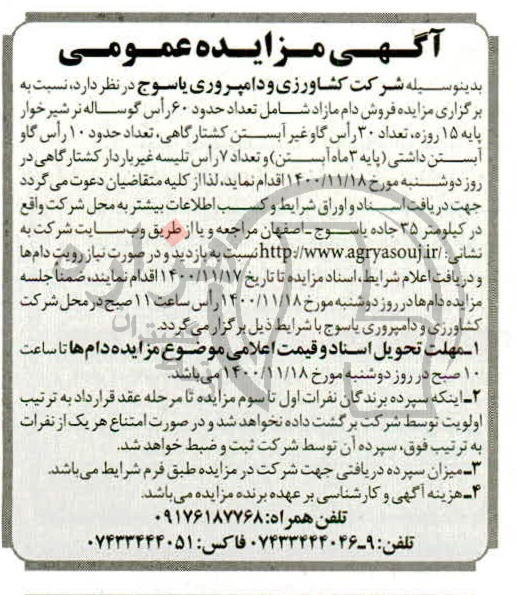 آگهی مزایده عمومی
بدینوسیله شرکت کشاورزی و دامپروری یاسوج در نظر دارد، نسبت به
برگزاری مزایده فروش دام مازاد شامل تعداد حدود ۶۰ رأس گوساله نر شیرخوار
پایه ۱۵ روزه، تعداد ۳۰ رأس گاو غیر آبستن کشتارگاهی، تعداد حدود ۱۰ رأس گاو
آبستن داشتی (پایه ۳ ماه آبستن) و تعداد ۷ رأس تلیسه غیر باردار کشتارگاهی در
روز دوشنبه مورخ ۱۴۰۰/۱۱/۱۸ اقدام نماید، لذا از کلیه متقاضیان دعوت می‌گردد
جهت دریافت اسناد و اوراق شرایط و کسب اطلاعات بیشتر به محل شرکت واقع
در کیلومتر ۳۵ جاده یاسوج-اصفهان مراجعه و یا از طریق وب‌سایت شرکت به
نشانی: http://www.agryasouj.ir/ نسبت به بازدید و در صورت نیاز رویت دام‌ها
و دریافت اعلام شرایط، اسناد مزایده تا تاریخ ۱۴۰۰/۱۱/۱۷ اقدام نمایند، ضمناً جلسه
مزایده دام‌ها در روز دوشنبه مورخ ۱۴۰۰/۱۱/۱۸ رأس ساعت ۱۱ صبح در محل شرکت
کشاورزی و دامپروری یاسوج با شرایط ذیل برگزار می‌گردد.
۱ـ مهلت تحویل اسناد و قیمت اعلامی موضوع مزایده دام‌ها تا ساعت
۱۰ صبح در روز دوشنبه مورخ ۱۴۰۰/۱۱/۱۸ می‌باشد.
۲ـ اینکه سپرده برندگان نفرات اول تا سوم مزایده تا مرحله عقد قرارداد به ترتیب
اولویت توسط شرکت برگشت داده نخواهد شد و در صورت امتناع هر یک از نفرات
به ترتیب فوق، سپرده آن توسط شرکت ثبت و ضبط خواهد شد.
۳ـ میزان سپرده دریافتی جهت شرکت در مزایده طبق فرم شرایط می‌باشد.
۴ـ هزینه آگهی و کارشناسی بر عهده برنده مزایده می‌باشد.
تلفن همراه: ۰۹۱۷۶۱۸۷۷۶۸
تلفن: ۹ـ۰۷۴۳۳۴۴۴۰۴۶ فاکس: ۰۷۴۳۳۴۴۴۰۵۱